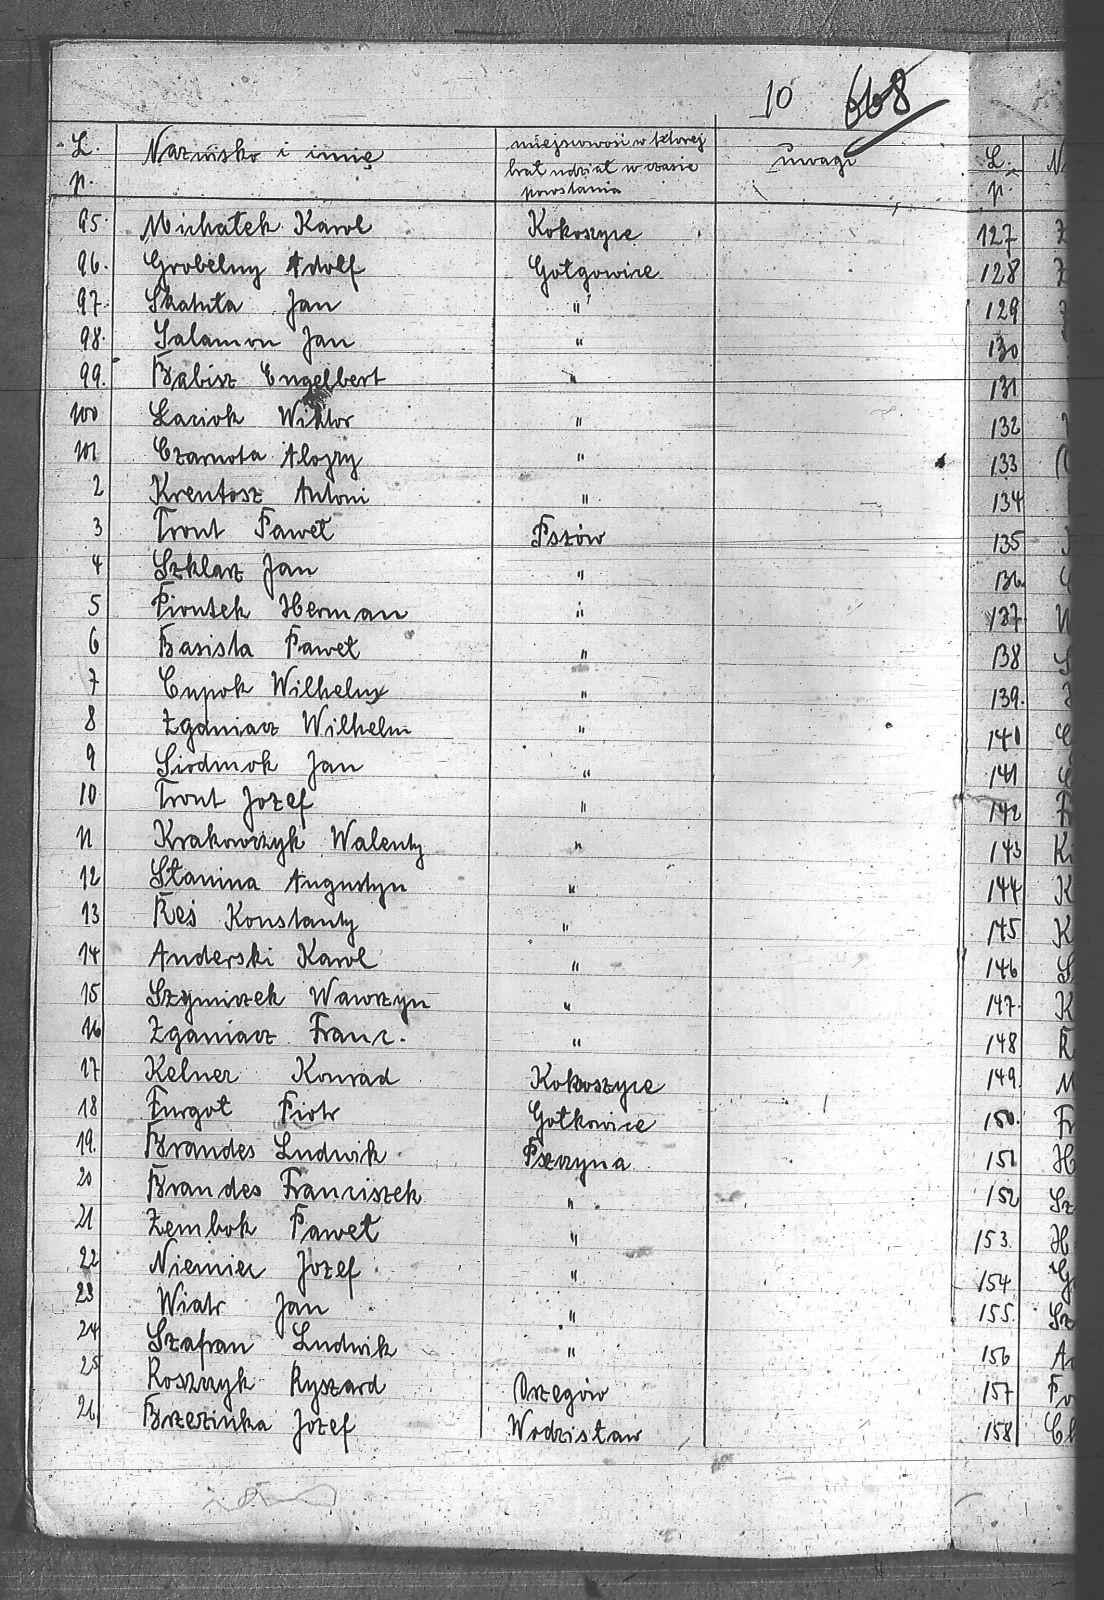 10 668
L. p. Nazwisko i imię miejscowość w której brał udział w czasie powstania uwagi
95. Michałek Karol Kokoszyce
96. Grobelny Adolf Gołgowice
97. Skatuła Jan "
98. Salamon Jan "
99. Babisz Engelbert "
100 Łaciok Wiktor "
101 Czarnota Alojzy "
2 Krentosz Antoni "
3 Tront Paweł Pszów
4 Szklarz Jan "
5 Piontek Herman "
6 Basista Paweł "
7 Cupok Wilhelm "
8 Zganiacz Wilhelm "
9 Siodmok Jan "
10 Tront Jozef "
11 Krakowczyk Walenty "
12 Stanina Augustyn "
13 Reś Konstanty "
14 Anderski Karol "
15 Szymiczek Wawrzyn "
16 Zganiacz Franc. "
17 Kelner Konrad Kokoszyce
18 Furgoł Piotr Gołkowice
19. Brandes Ludwik Pszczyna
20 Brandes Franciszek "
21 Zembok Paweł "
22 Niemiec Jozef "
23 Wiatr Jan "
24 Szafran Ludwik "
25 Roszczyk Ryszard Orzegów
26 Brzezinka Jozef Wodzisław
L. p.
127
128
129
130
131
132
133
134
135
136.
137
138
139.
140
141
142
143
144
145
146
147.
148
149.
150.
151
152
153.
154
155.
156
157
158